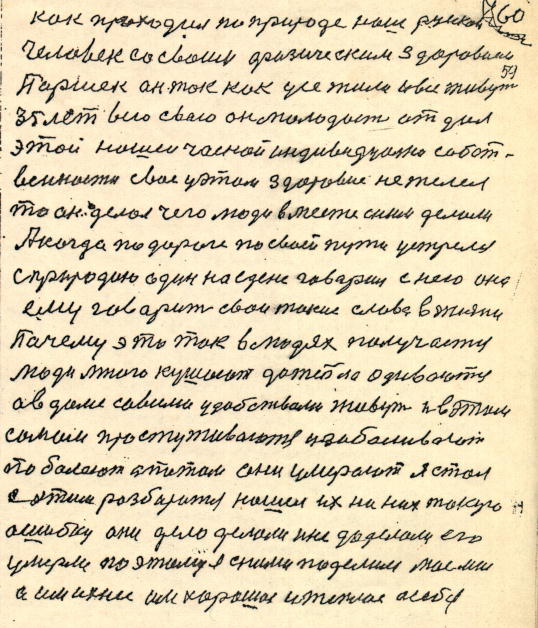 60
59
как проходил по природе наш русский
человек со своим физическим здоровием
Паршек он так как все жили и все живут
35 лет всю сваю он молодост отдал
этой нашей часной индивидуално собст-
венности свае у этом здоровие не жалел
то он делал чего люди вместе с ним делали
А когда по дороге по своей пути устрелся
с природаю один на едене говарил с нею она
ему говарит свои такие слова в жизни
Пачему это так в людях получается
люди много кушают до тепла одиваются
а в доме совсеми удобствами живут и в этом
самом простуживаются и забаливают
по болеют а потом они умерают я стал
с этим розбиратся нашел их на них такую
ошибку они дело делали и не доделали его
умерли поэтому я сними поделим маеми
а им ихнее им хорошое и теплое а себя